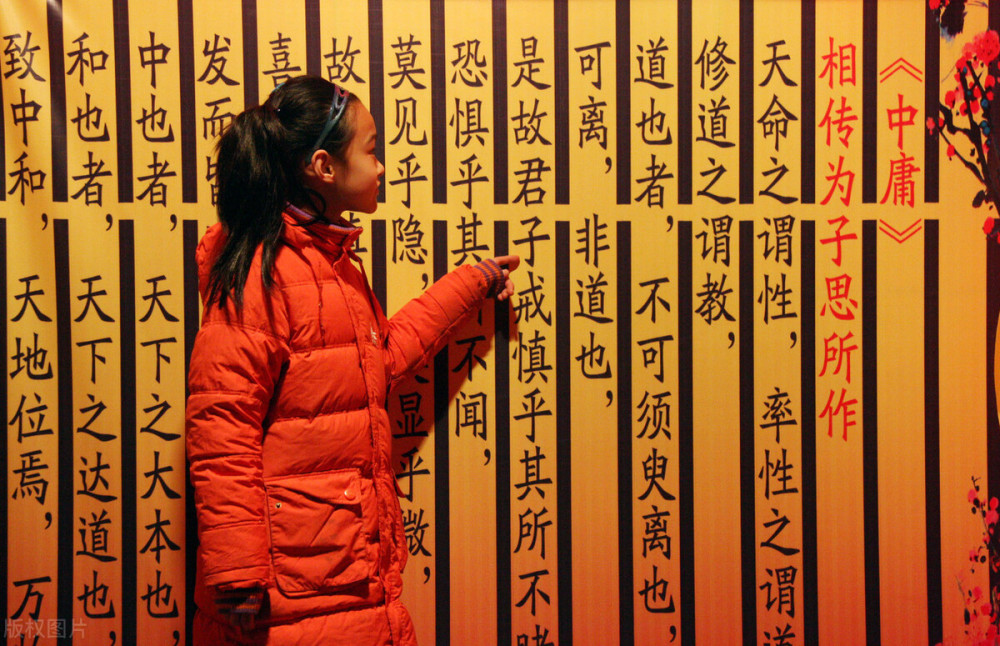 《中庸》
相传为子思所作
天命之谓性，率性之谓道
修道之谓教，
道也者，不可须臾离也，
可离，非道也，
是故君子戒慎乎其所不睹
恐惧乎其所不闻，
莫见乎隐，莫显乎微，
故
喜
发而皆
中也者，天下之大本也，
和也者，天下之达道也，
致中和，天地位焉，万
版权图片